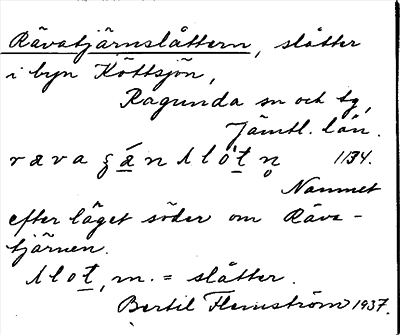 Rävatjärnslåttern, slåtter
i byn Köttsjön,
Ragunda sn och tg,
Jämtl. län.
1134.
Namnet
efter läget söder om Räva-
tjärnen.
m. = slåtter.
Bertil Flemström 1937.